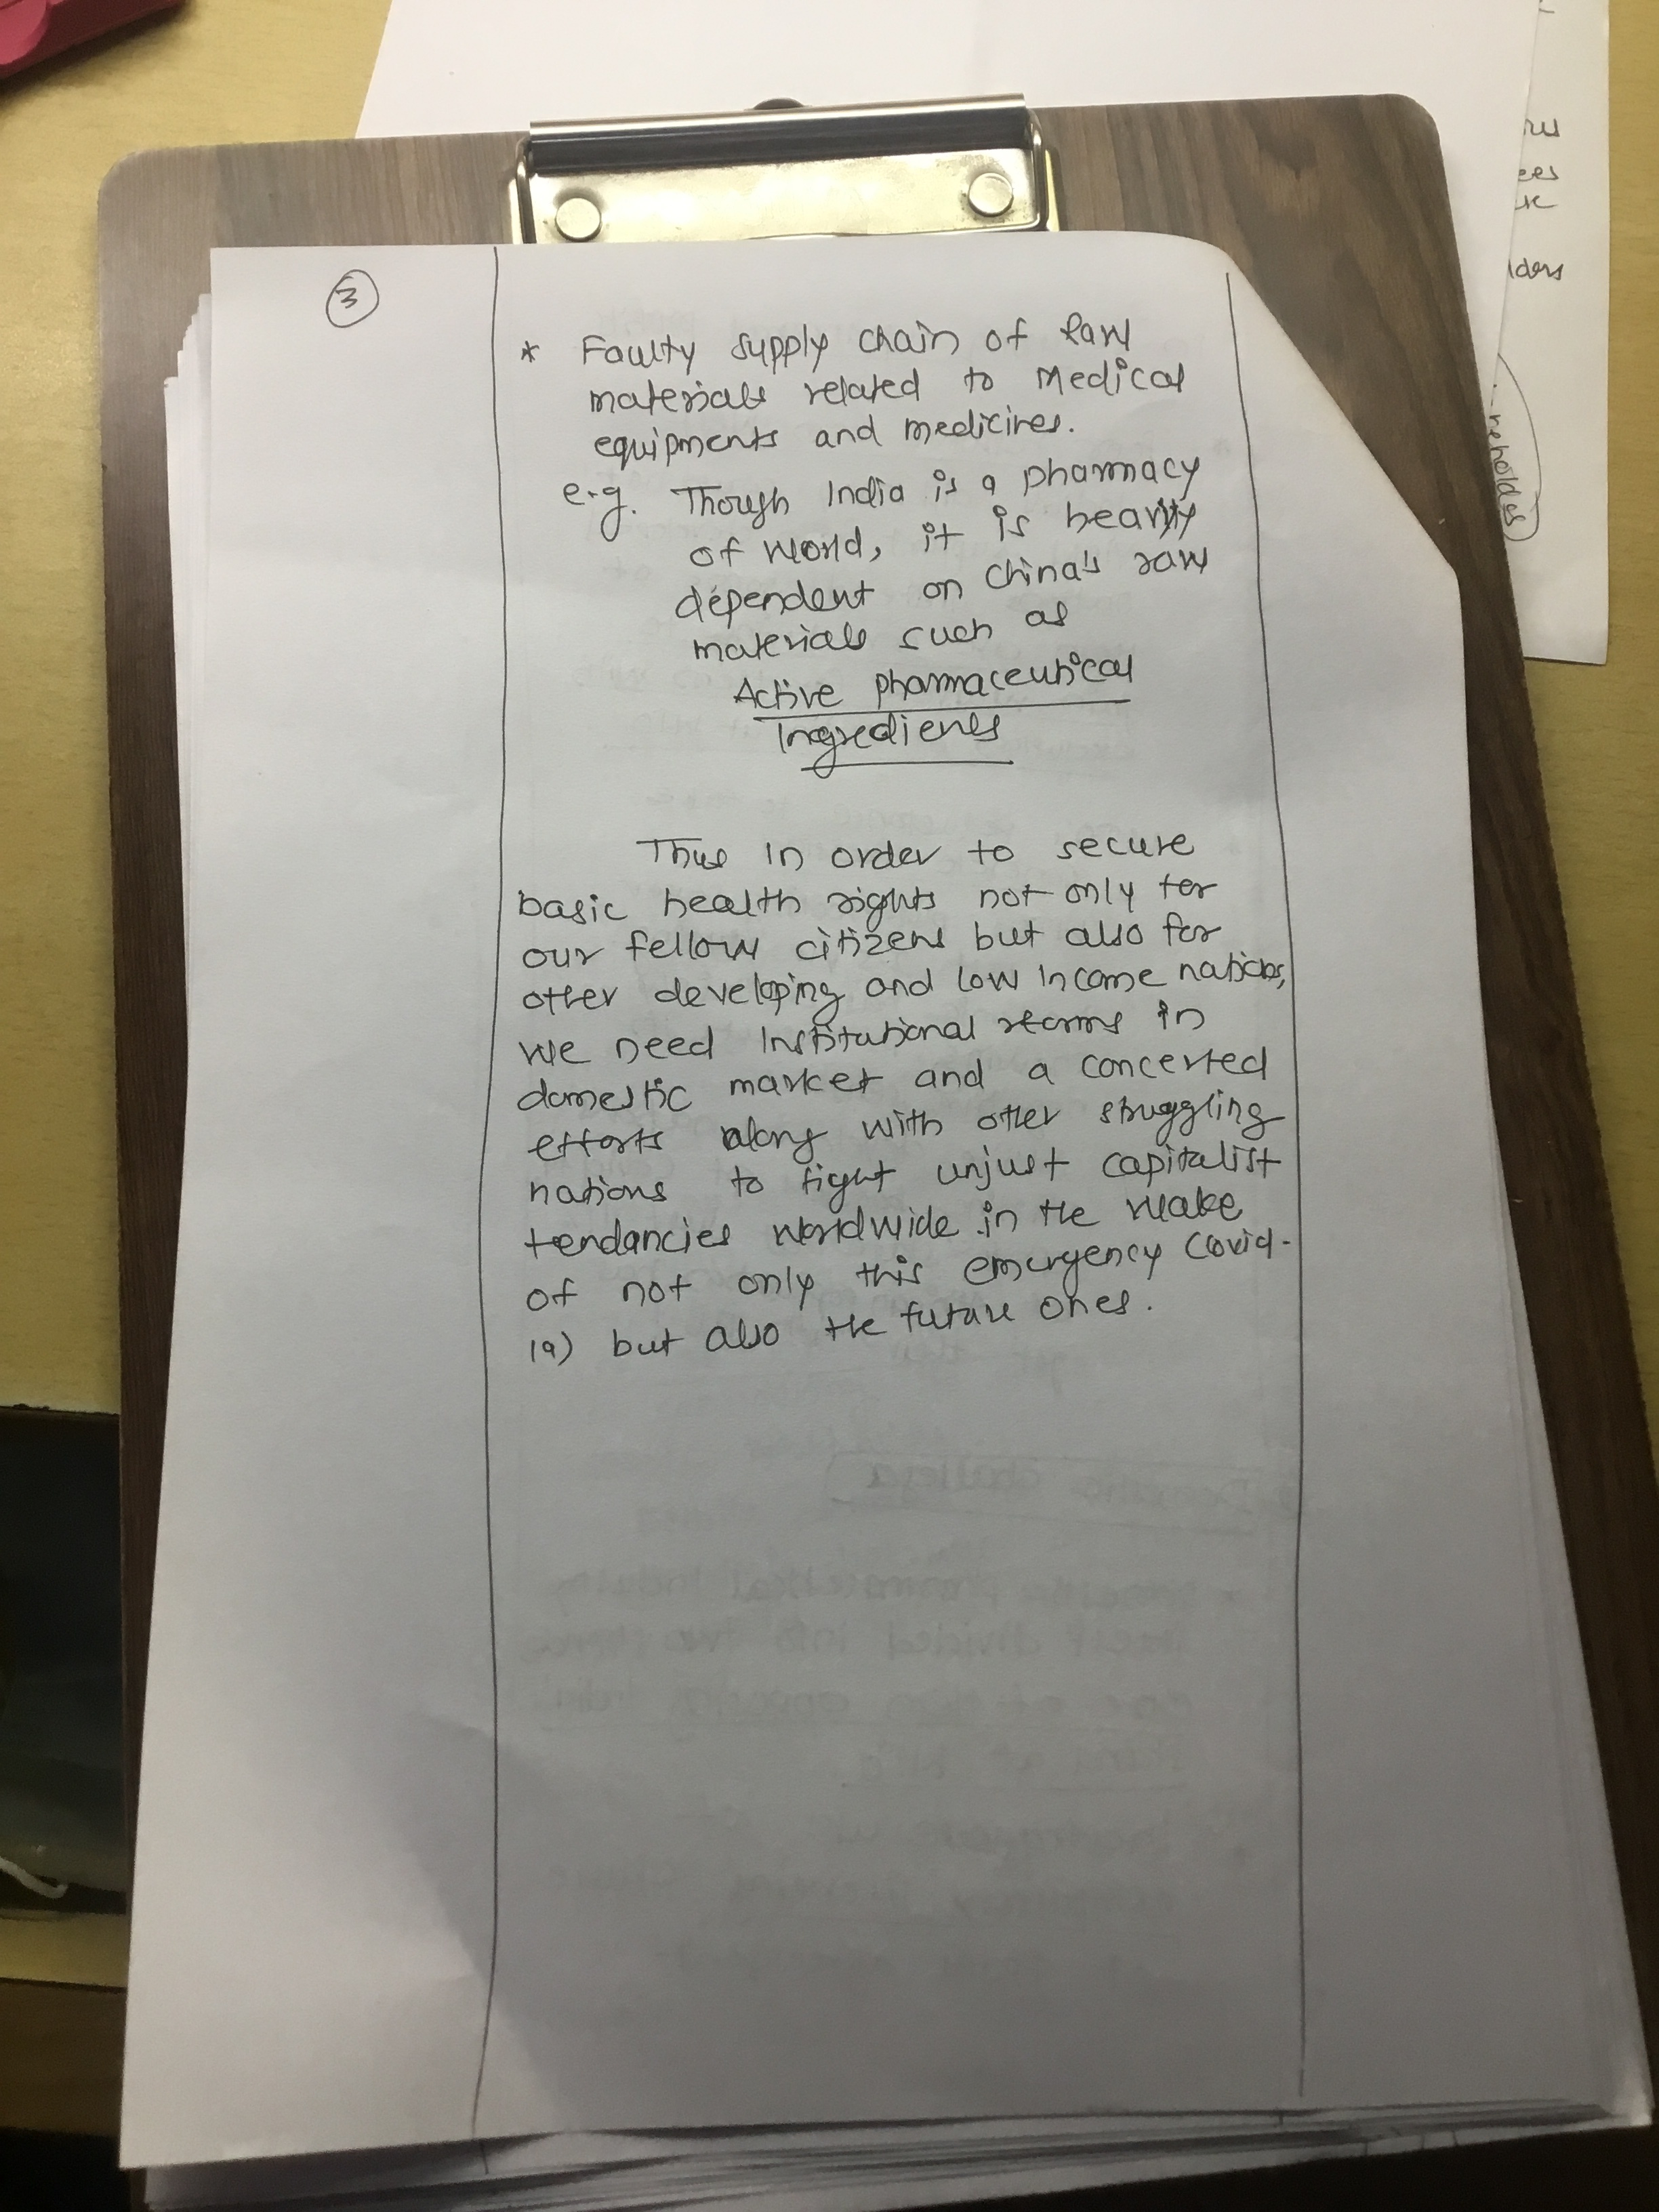 3
* Faulty supply chain of Raw
materials related to Medical
equipments and medicines.
e.g. Though India is a pharmacy
of world, it is heavily
dependent on China's raw
materials such as
Active pharmaceutical
Ingredients
Thus in order to secure
basic health rights not only for
our fellow citizens but also for
other developing and low income nations,
we need Institutional reforms in
domestic market and a concerted
efforts along with other struggling
nations to fight unjust capitalist
tendancies worldwide in the wake
of not only this emergency Covid-
19) but also the future ones.